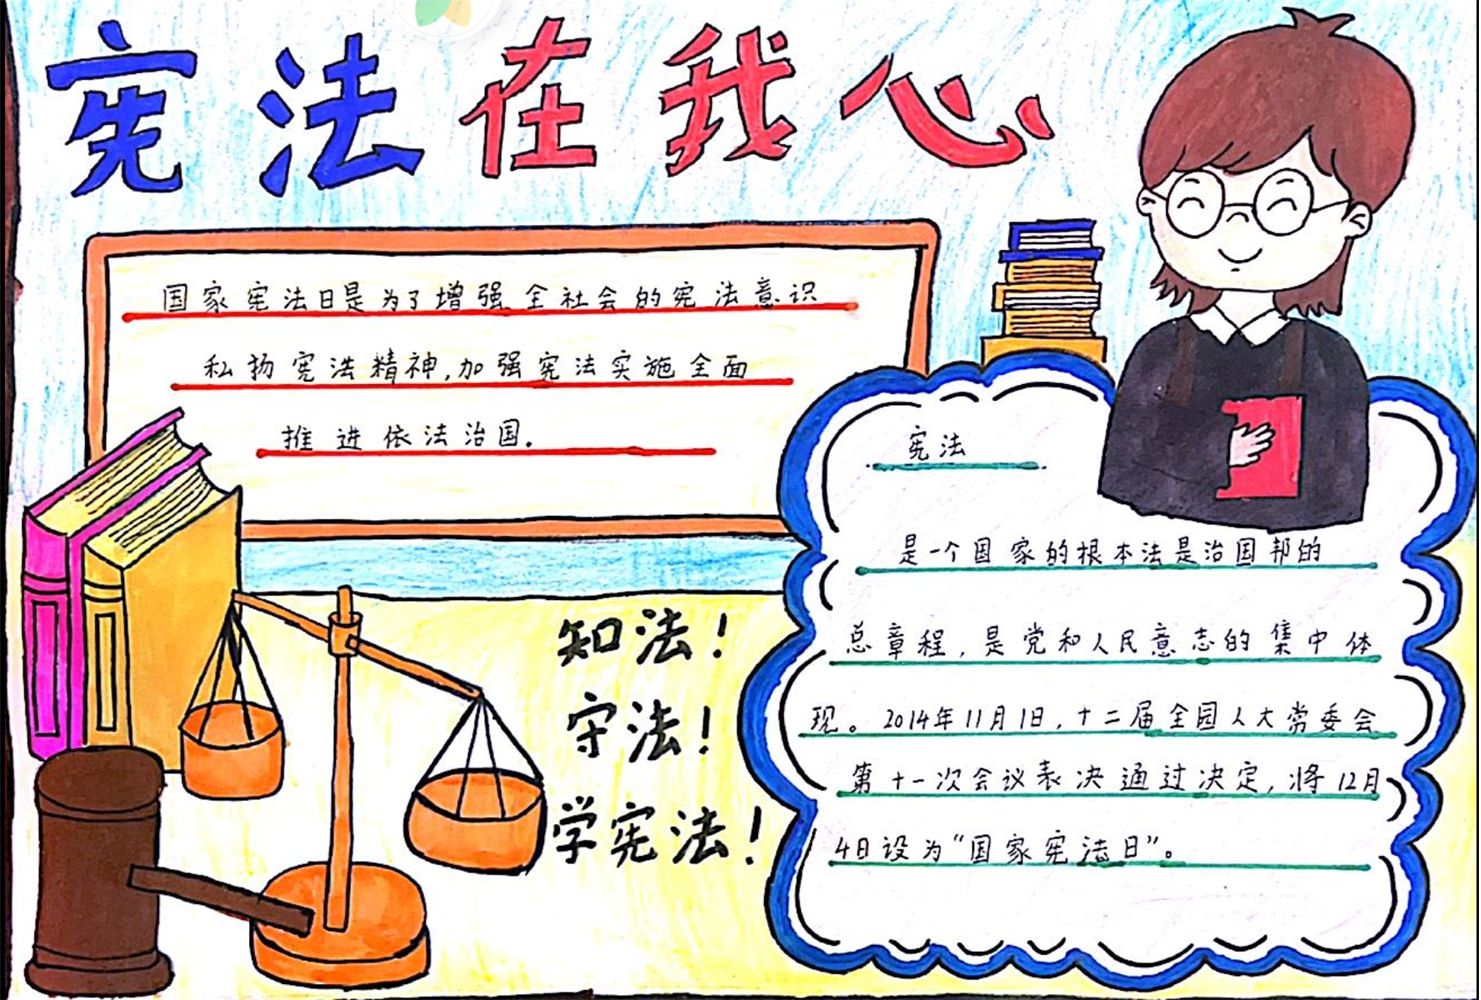 宪法在我心
国家宪法日是为了增强全社会的宪法意识
私扬宪法精神,加强宪法实施全面
推进依法治国.
知法!
守法!
学宪法!
宪法
是一个国家的根本法是治国邦的
总章程,是党和人民意志的集中体
现。2014年11月1日,十二届全园人大常委会
第十一次会议表决通过决定,将12月
4日设为“国家宪法日”。